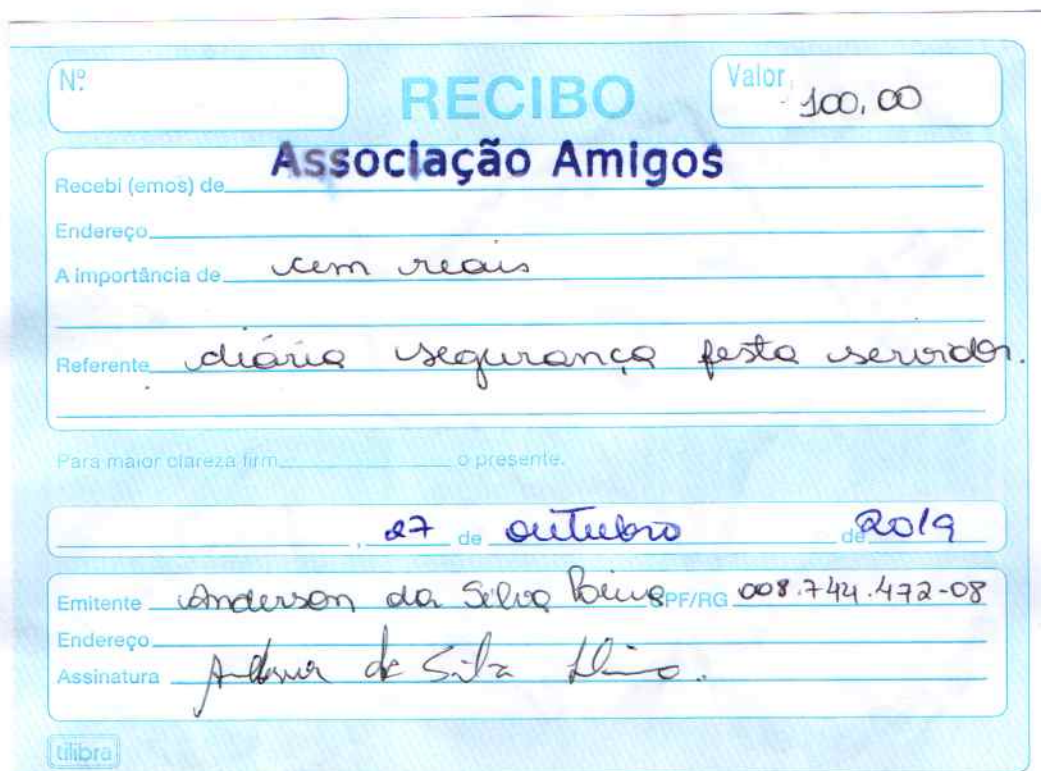 Nº
RECIBO
Valor 100,00
Associação Amigos
Recebi (emos) de
Endereço
A importância de cem reais
Referente diária segurança festa servidor.
Para maior clareza firm o presente.
, 27 de outubro de 2019
Emitente Anderson da Silva CPF/RG 008.744.472-08
Endereço
Assinatura
tilibra